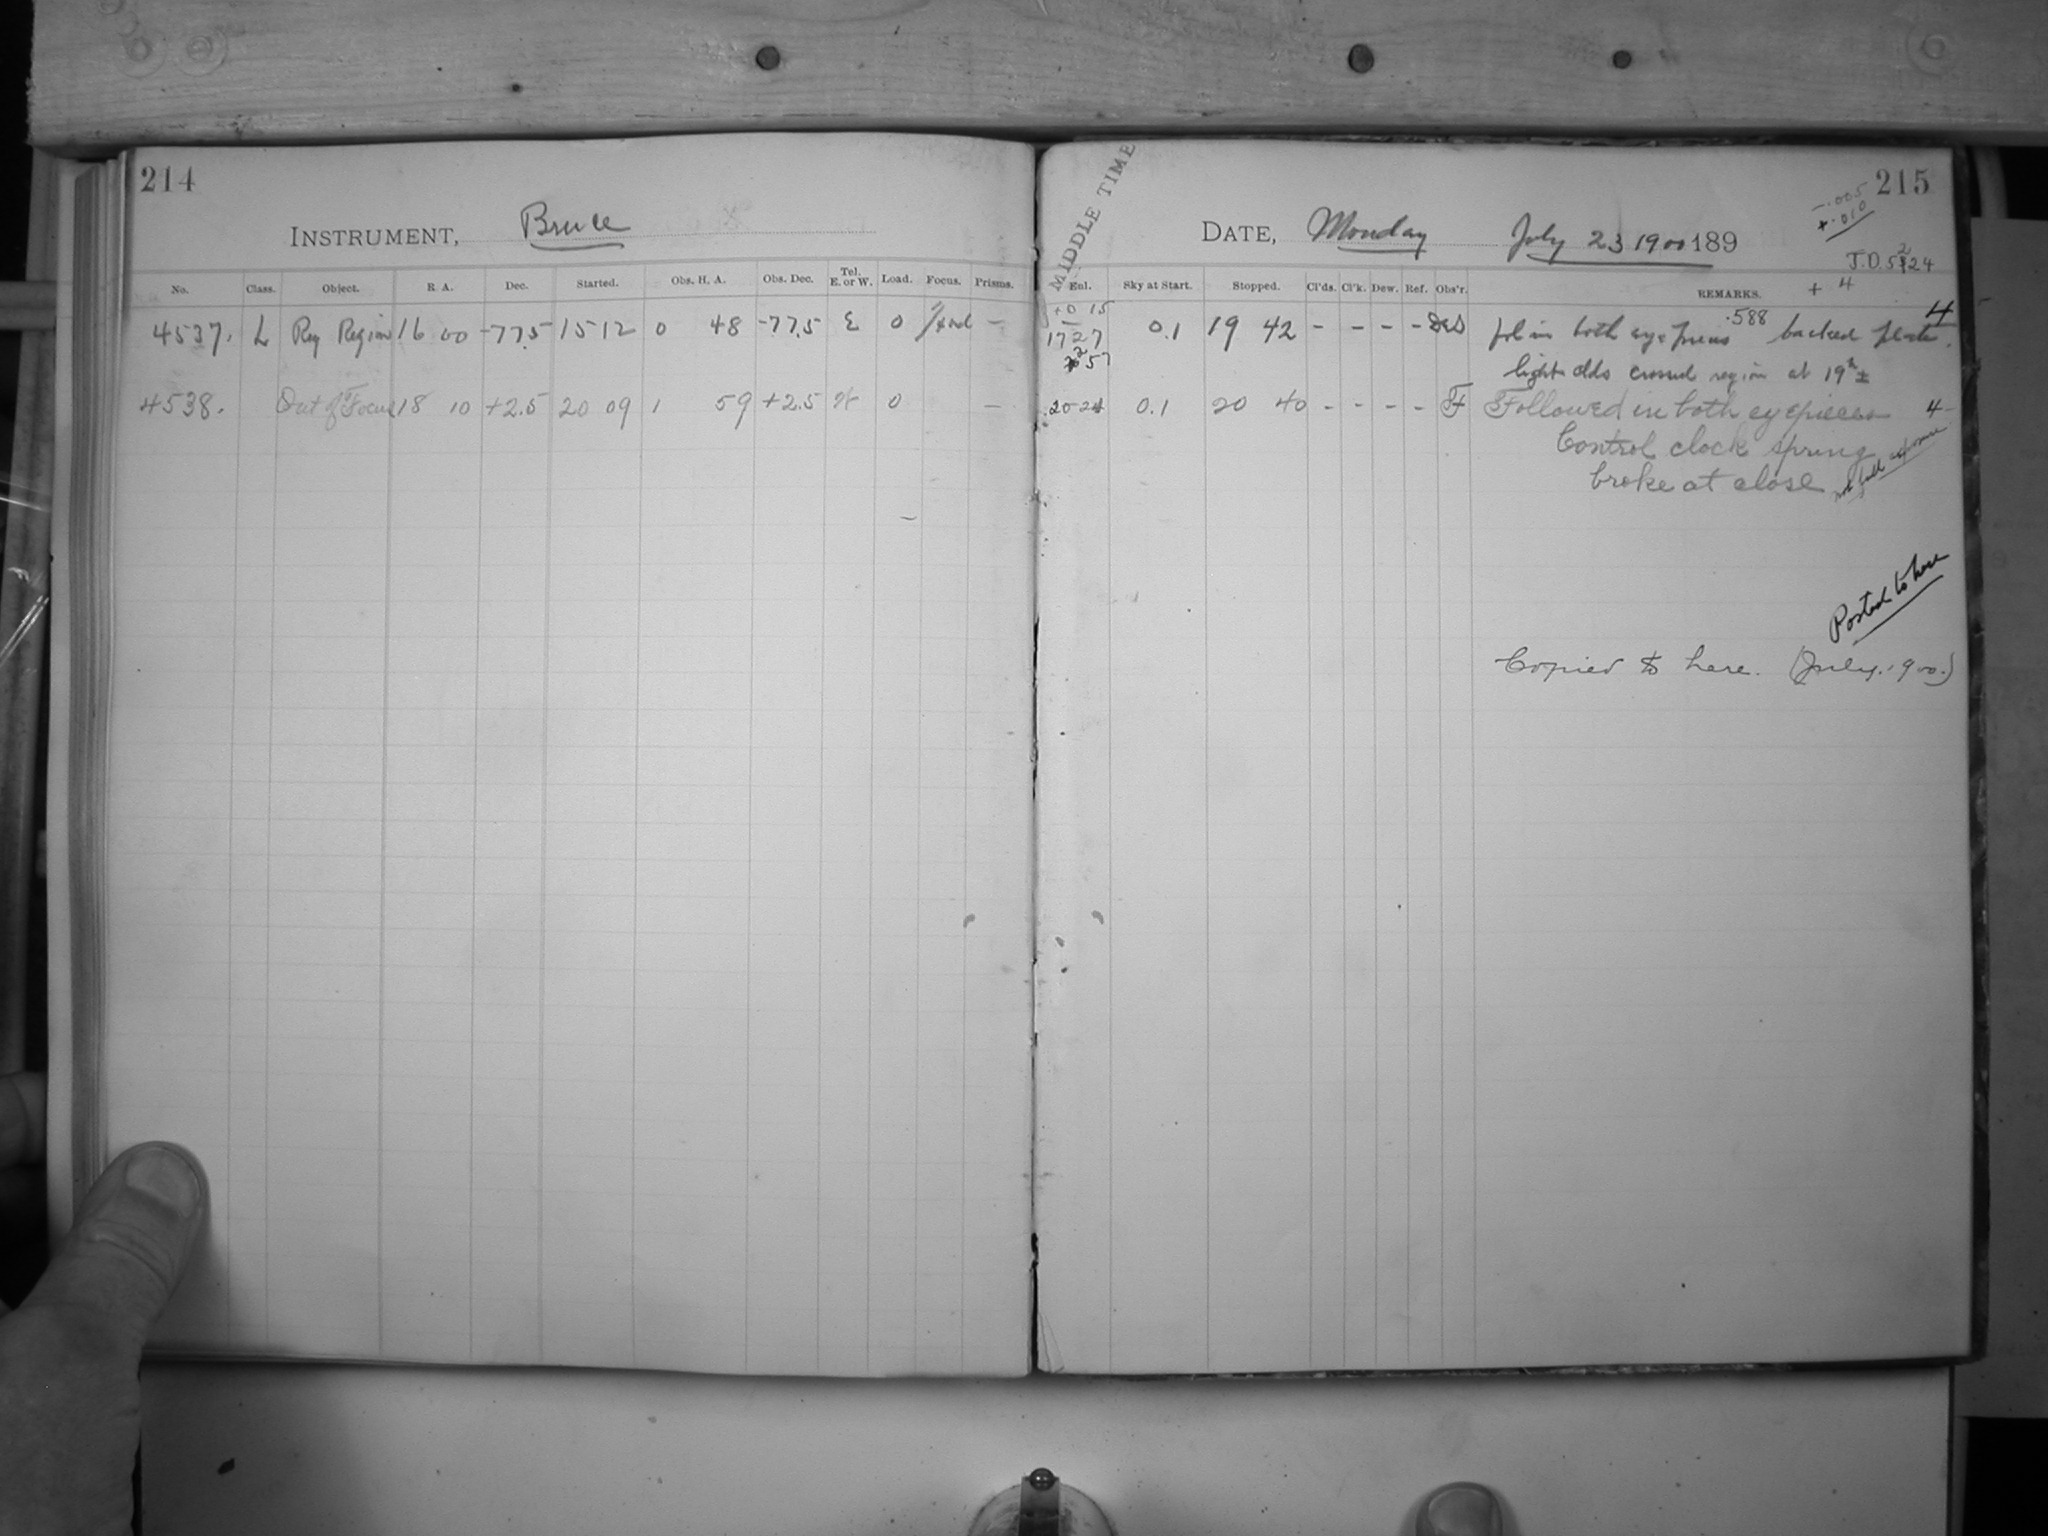 214
INSTRUMENT, Bruce
No. Class. Object. R. A. Dec. Started. Obs. H. A. Obs. Dec. Tel. E. or W. Load. Focus. Prisms.
4537. L Reg Region 16 00 -77.5 15 12 0 48 -77.5 E 0 —
4538. Out of Focus 18 10 +2.5 20 09 1 59 +2.5 W 0 —
MIDDLE TIME
215
-.005
+.010
DATE, Monday July 23 1900 189
J.D. 5224
+ 4
Eul. Sky at Start. Stopped. Cl'ds. Cl'k. Dew. Ref. Obs'r. REMARKS.
+0 15
17 27 0.1 19 42 - - - - fol in both eyepieces .588 backed plate. 4
57
light clds crossed region at 19h ±
20 24 0.1 20 40 - - - - F Followed in both eyepieces 4
Control clock spring
broke at close not full exposure
Posted to here
Copied to here. (July, 1900.)